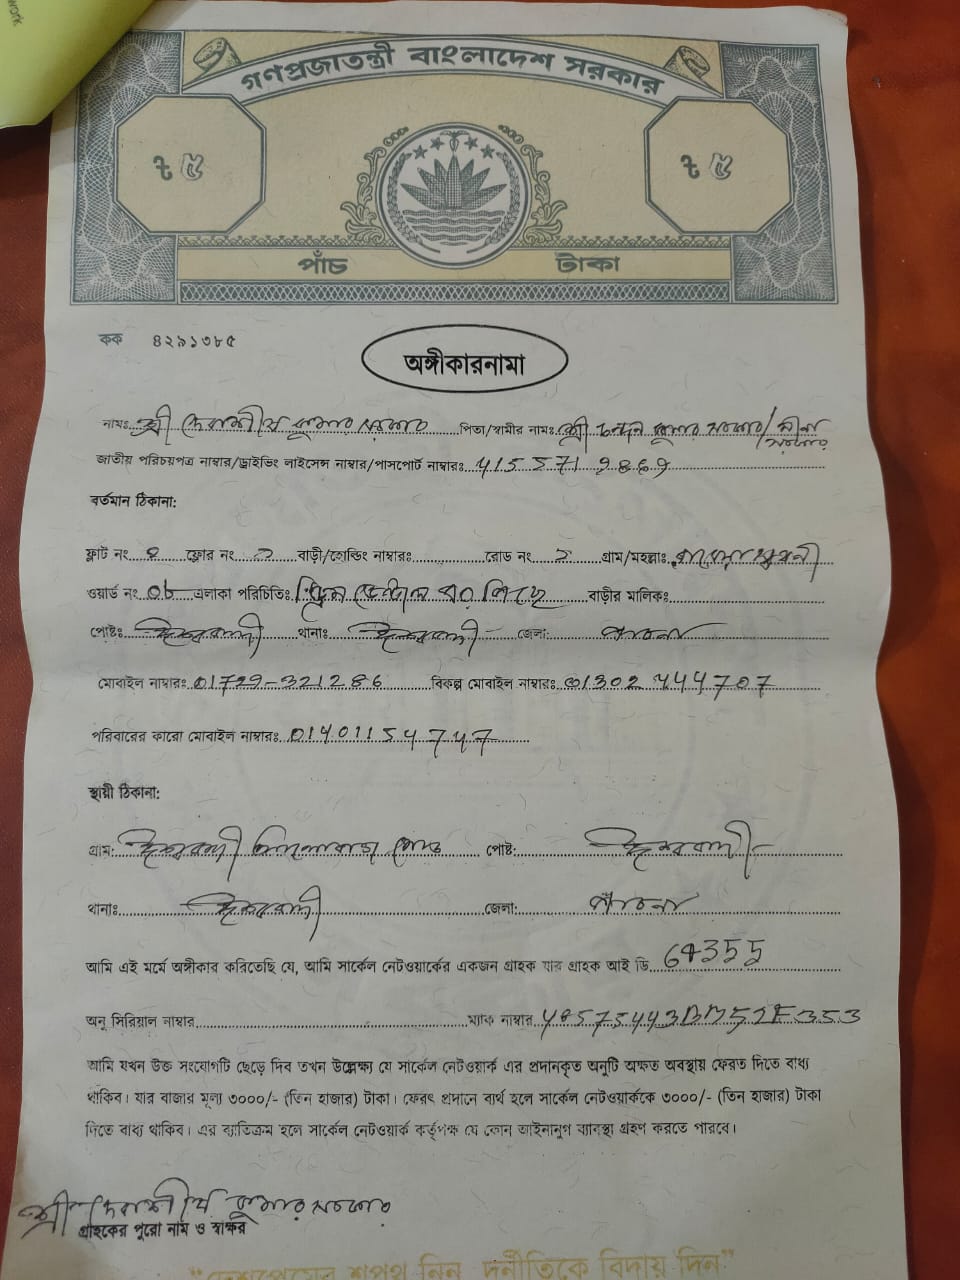 work
গণপ্রজাতন্ত্রী বাংলাদেশ সরকার
৳ ৫ ৳ ৫
পাঁচ টাকা
কক ৪২৯১৩৮৫
অঙ্গীকারনামা
নামঃ শ্রী দেবাশীষ কুমার সরকার পিতা/স্বামীর নামঃ শ্রী চন্দন কুমার সরকার/
সরকার
জাতীয় পরিচয়পত্র নাম্বার/ড্রাইভিং লাইসেন্স নাম্বার/পাসপোর্ট নাম্বারঃ
বর্তমান ঠিকানা:
ফ্লাট নং ফ্লোর নং বাড়ী/হোল্ডিং নাম্বারঃ রোড নং গ্রাম/মহল্লাঃ
ওয়ার্ড নং এলাকা পরিচিতিঃ বাড়ীর মালিকঃ
পোষ্টঃ ঈশ্বরদী থানাঃ ঈশ্বরদী জেলা: পাবনা
মোবাইল নাম্বারঃ 01729-321286 বিকল্প মোবাইল নাম্বারঃ 01302 444707
পরিবারের কারো মোবাইল নাম্বারঃ 01401154747
স্থায়ী ঠিকানা:
গ্রাম: ঈশ্বরদী রোড পোষ্ট: ঈশ্বরদী
থানাঃ ঈশ্বরদী জেলা: পাবনা
আমি এই মর্মে অঙ্গীকার করিতেছি যে, আমি সার্কেল নেটওয়ার্কের একজন গ্রাহক যার গ্রাহক আই ডি 64355
অনু সিরিয়াল নাম্বার ম্যাক নাম্বার
আমি যখন উক্ত সংযোগটি ছেড়ে দিব তখন উল্লেক্ষ্য যে সার্কেল নেটওয়ার্ক এর প্রদানকৃত অনুটি অক্ষত অবস্থায় ফেরত দিতে বাধ্য
থাকিব। যার বাজার মূল্য ৩০০০/- (তিন হাজার) টাকা। ফেরৎ প্রদানে ব্যর্থ হলে সার্কেল নেটওয়ার্ককে ৩০০০/- (তিন হাজার) টাকা
দিতে বাধ্য থাকিব। এর ব্যতিক্রম হলে সার্কেল নেটওয়ার্ক কর্তৃপক্ষ যে কোন আইনানুগ ব্যাবস্থা গ্রহণ করতে পারবে।
শ্রী দেবাশীষ কুমার সরকার
গ্রাহকের পুরো নাম ও স্বাক্ষর
“দেশপ্রেমের শপথ নিন, দুর্নীতিকে বিদায় দিন”